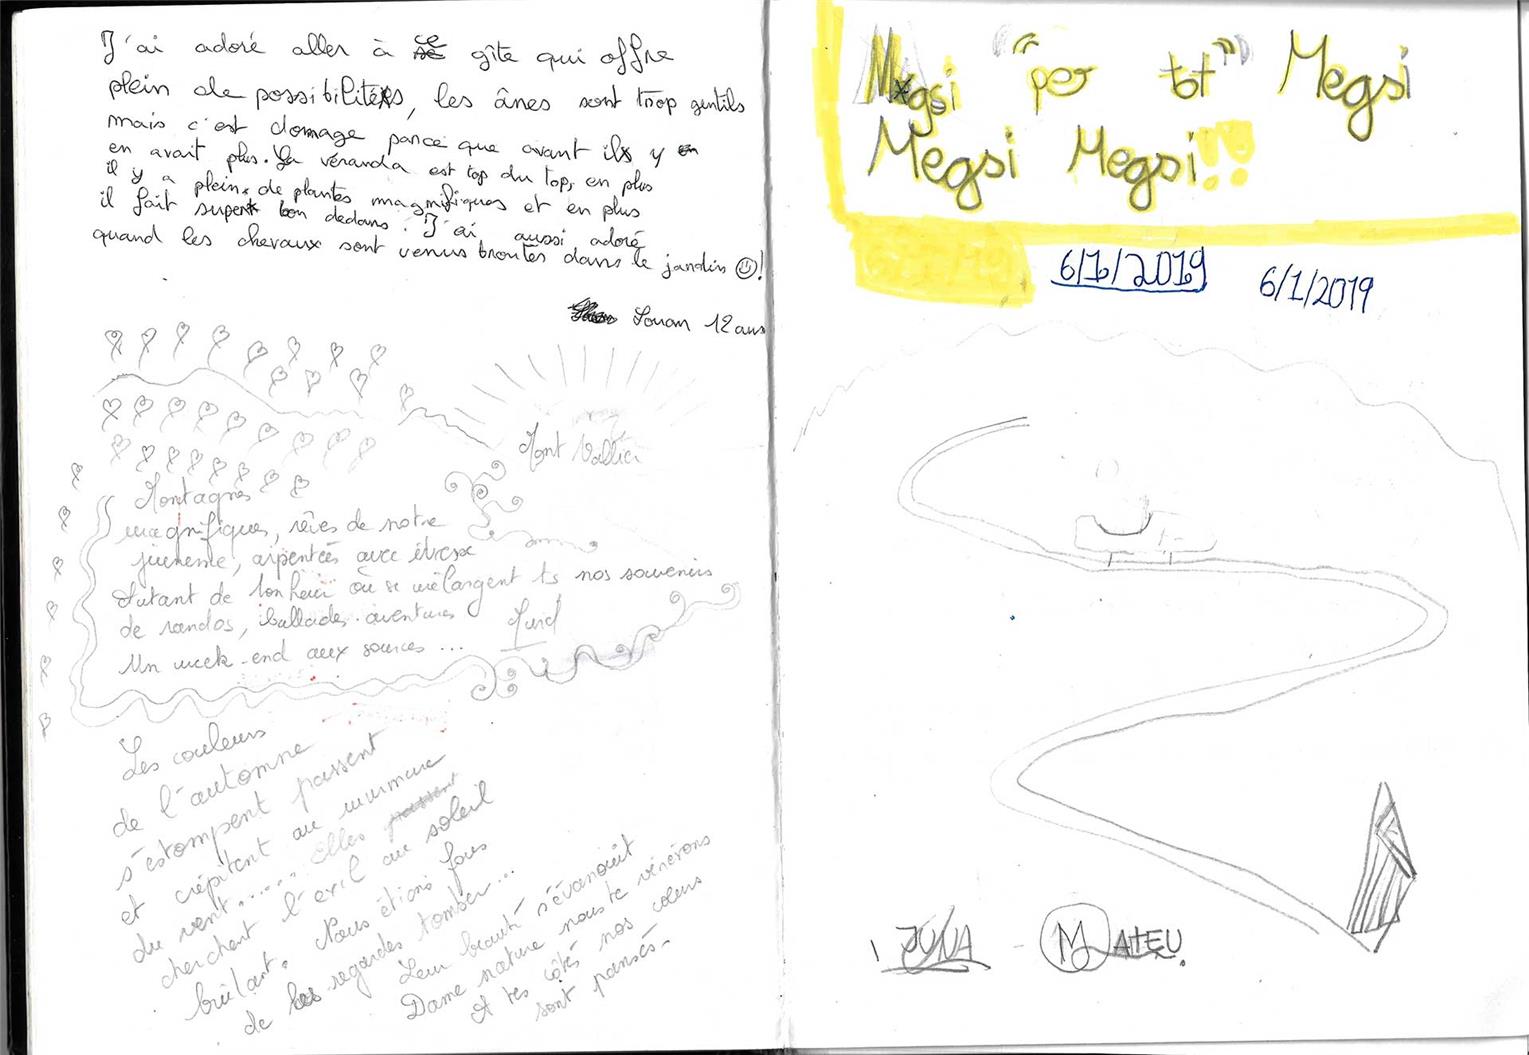 J'ai adoré aller à ce gîte qui offre
plein de possibilités, les ânes sont trop gentils
mais c'est domage parce que avant ils y en
en avait plus. La véranda est top du top, en plus
il y a plein de plantes magnifiques et en plus
il fait super bon dedans. J'ai aussi adoré
quand les chevaux sont venus broutés dans le jardin !
Louan 12 ans
Mont Vallier
Montagnes
magnifiques, rêves de notre
jeunesse, arpentées avec
Autant de bonheur où se mélangent ts nos souvenirs
de randos, ballades. aventures
Un week-end aux sources ...
Les couleurs
de l'automne
s'estompent passent
et crépitent au murmure
du vent...... Elles
cherchent l'exil au soleil
brûlant. Nous étions fous
de les regarder tomber...
Leur beauté s'évanouit
Dame nature nous te vénérons
A tes côtés nos coeurs
sont pansés.
Megsi "per tot" Megsi
Megsi Megsi!!
6/1/2019 6/1/2019
JUNA - MATEU.